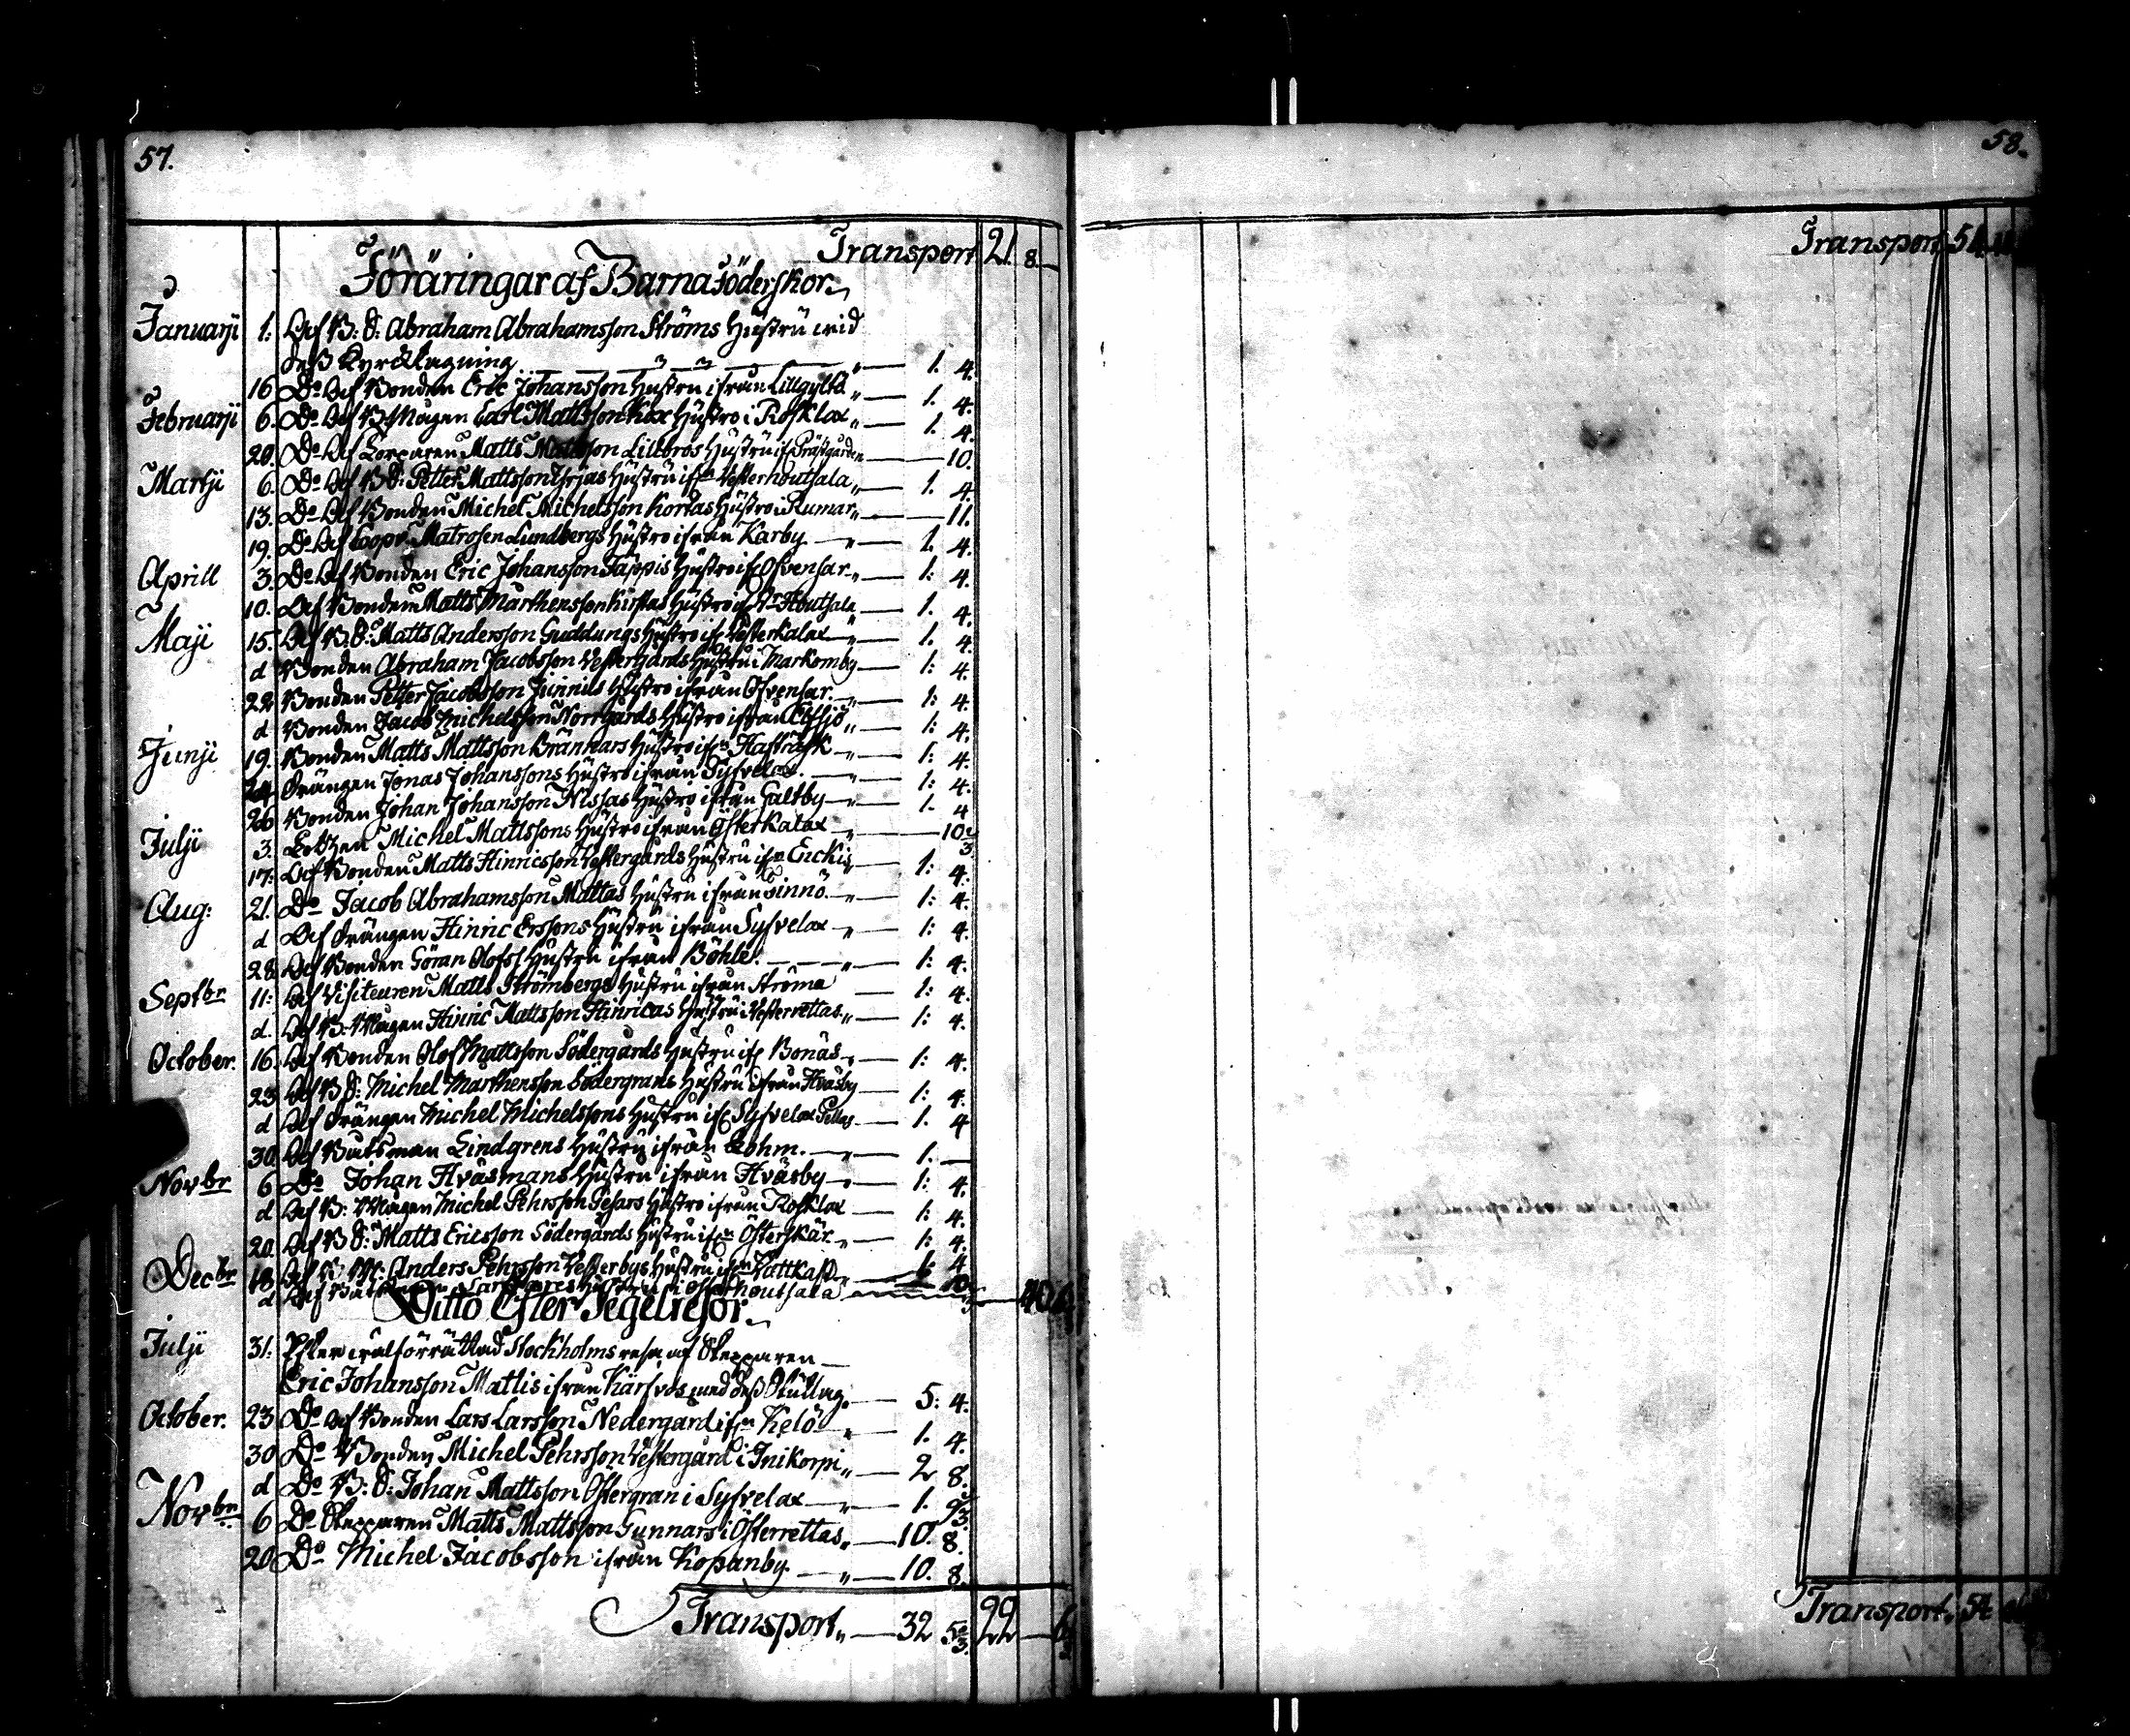 57.
Transport 21. 8.
Föräringar af Barnaföderskor
Januarji 1: Af B: S: Abraham Abrahamsson Ströms Hustru wid
dess Kyrcktagning 1. 4.
16 Do Af Bonden Eric Johansson Hustru ifrån Lillgylto 1. 4.
Februarji 6. Do Af B. Mågen Carl Mattsson Kax Hustro i Rosklax 1. 4.
20. Do Af Torparen Matts Mattsson Lillbros Hustru if. Prästgården 10.
Martji 6. Do Af B S: Petter Mattsson Hustru ifrn Vesterhoutsala 1. 4.
13. Do Af Bonden Michel Michelsson Kortas Hustro i Rumar 11.
19. Do Af Matrosen Lundbergs Hustro ifrån Karby 1. 4.
Aprill 3. Do Af Bonden Eric Johansson Täppis Hustro if. Ofvensar 1: 4.
10. Af Bonden Matts Marthensson Kirstas Hustro if. Houtsala 1. 4.
Maji 15. Af B. S: Matts Andersson Guddungs Hustro if. Vesterkalax 1. 4.
d Bonden Abraham Jacobsson Vestergårds Hustru i Markomby 1: 4.
22 Bonden Petter Jacobsson Hustro ifrån Ofvensar 1: 4
d Bonden Jacob Michelsson Norrgårds Hustro ifrån Elfsjö 1: 4.
Junji 19. Bonden Matts Mattsson Brännars Hustro ifn Hafträsk 1: 4.
24 Drängen Jonas Johanssons Hustro ifrån Syfvelax 1: 4.
26 Bonden Johan Johansson Nissas Hustro ifrån Galtby 1. 4
Julji 3. Michel Mattssons Hustro ifrån Österkalax 10 3
17: Af Bonden Matts Hinricsson Vestergårds Hustru ifn Enckis 1: 4.
Aug: 21. Do Jacob Abrahamsson Mattas Hustru ifrån Finnö 1: 4.
d Af Drängen Hinric Erssons Hustru ifrån Syfvelax 1: 4.
28 Af Bonden Göran Olofs Hustru ifrån Böhle 1: 4.
Septbr 11: Af Visiteuren Matts Strömbergs Hustru ifrån Ströma 1: 4.
d. Af B: Mågen Hinric Mattsson Hinricas Hustru i Vesterrettas 1: 4.
October. 16. Af Bonden Olof Mattsson Södergårds Hustru if. Bonäs 1: 4.
23 Af B S: Michel Marthensson Södergrans Hustru ifrån Hväsby 1: 4.
d Af Drängen Michel Michelssons Hustru if. Syfvelax Pellas 1. 4
30 Af Båtsman Lindgrens Hustru ifrån 1.
Novbr 6 Do Johan Hväsmans Hustru ifrån Hväsby 1: 4.
d Af B: Mågen Michel Pehrsson Hustro ifrån Rosklax 1: 4.
20. Af B S: Matts Ericsson Södergårds Hustru ifn Österskär 1: 4.
Decbr 18 Af B: M: Anders Pehrsson Vesterbys Hustru ifrn Vattkast 1: 4
d Af Lars Hustru i Österhoutsala 10
Ditto Efter Segelresor
Julji 31. Efter välförrättad Stockholms resa af Skepparen
Eric Johansson Mattis ifrån Kärfvos med dess Skutlag 5: 4.
October. 23 Do Af Bonden Lars Larsson Nedergård ifn Kelö 1. 4.
30 Do Bonden Michel Pehrsson Vestergård i Inikorpi 2 8.
d Do B: S: Johan Mattsson Östergran i Syfvelax 1.
Novbr. 6 Do Skepparen Matts Mattsson Gunnars i Österrettas 10. 8.
20 Do Michel Jacobsson ifrån Kopanby 10. 8
Transport 32 22 6
58.
Transport 54
Transport 54